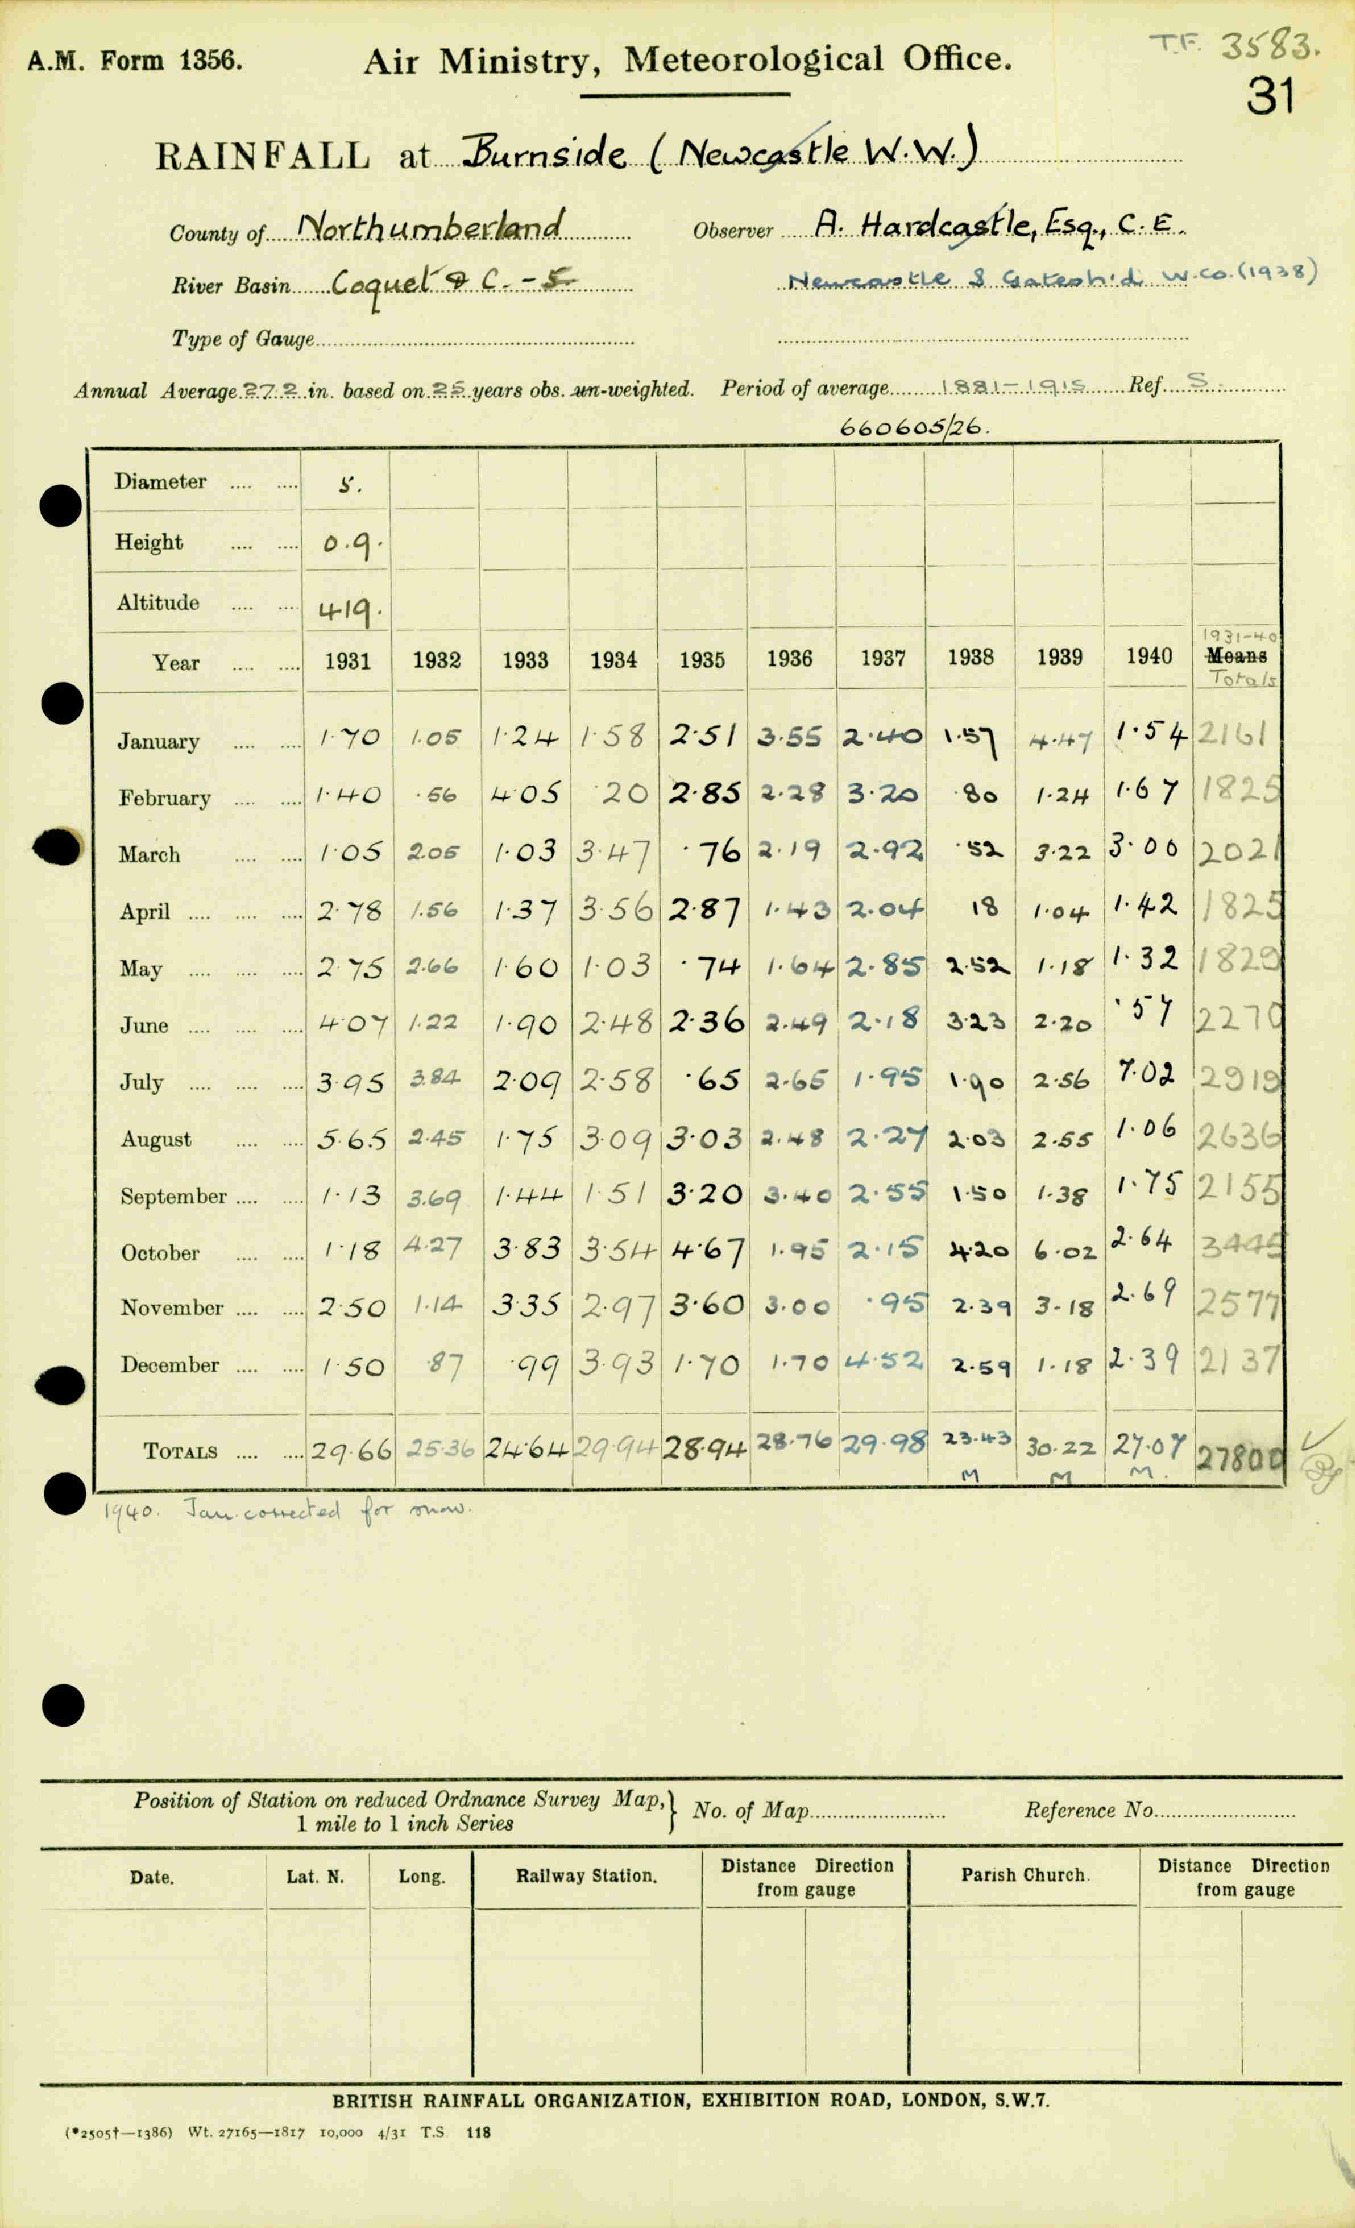 T.F. 3583.
A.M. Form 1356. Air Ministry, Meteorological Office.
31
RAINFALL at Burnside (Newcastle W.W.)
County of Northumberland Observer A. Hardcastle, Esq., C.E.
River Basin Coquet & C. - 5 Newcastle & Gatesh'd W.Co. (1938)
Type of Gauge
Annual Average 27.2 in. based on 25 years obs. un-weighted. Period of average 1881-1915 Ref. S.
660605/26.
Diameter .... .... 5.
Height .... .... 0.9.
Altitude .... .... 419.
1931-40
Year .... .... 1931 1932 1933 1934 1935 1936 1937 1938 1939 1940 Means
Totals
January .... .... 1.70 1.05 1.24 1.58 2.51 3.55 2.40 1.57 4.47 1.54 2161
February .... .... 1.40 .56 4.05 .20 2.85 2.28 3.20 .80 1.24 1.67 1825
March .... .... 1.05 2.05 1.03 3.47 .76 2.19 2.92 .52 3.22 3.00 2021
April .... .... .... 2.78 1.56 1.37 3.56 2.87 1.43 2.04 18 1.04 1.42 1825
May .... .... .... 2.75 2.66 1.60 1.03 .74 1.64 2.85 2.52 1.18 1.32 1829
June .... .... .... 4.07 1.22 1.90 2.48 2.36 2.49 2.18 3.23 2.20 .57 2270
July .... .... .... 3.95 3.84 2.09 2.58 .65 2.65 1.95 1.90 2.56 7.02 2919
August .... .... 5.65 2.45 1.75 3.09 3.03 2.48 2.27 2.03 2.55 1.06 2636
September .... .... 1.13 3.69 1.44 1.51 3.20 3.40 2.55 1.50 1.38 1.75 2155
October .... .... 1.18 4.27 3.83 3.54 4.67 1.95 2.15 4.20 6.02 2.64 3445
November .... .... 2.50 1.14 3.35 2.97 3.60 3.00 .95 2.39 3.18 2.69 2577
December .... .... 1.50 .87 .99 3.93 1.70 1.70 4.52 2.59 1.18 2.39 2137
TOTALS .... .... 29.66 25.36 24.64 29.94 28.94 28.76 29.98 23.43 30.22 27.07 27800
M M M.
1940. Jan. corrected for snow.
Position of Station on reduced Ordnance Survey Map, } No. of Map Reference No.
1 mile to 1 inch Series
Date. Lat. N. Long. Railway Station. Distance Direction from gauge Parish Church. Distance Direction from gauge
BRITISH RAINFALL ORGANIZATION, EXHIBITION ROAD, LONDON, S.W.7.
(*2505†—1386) Wt. 27165—1817 10,000 4/31 T.S. 118